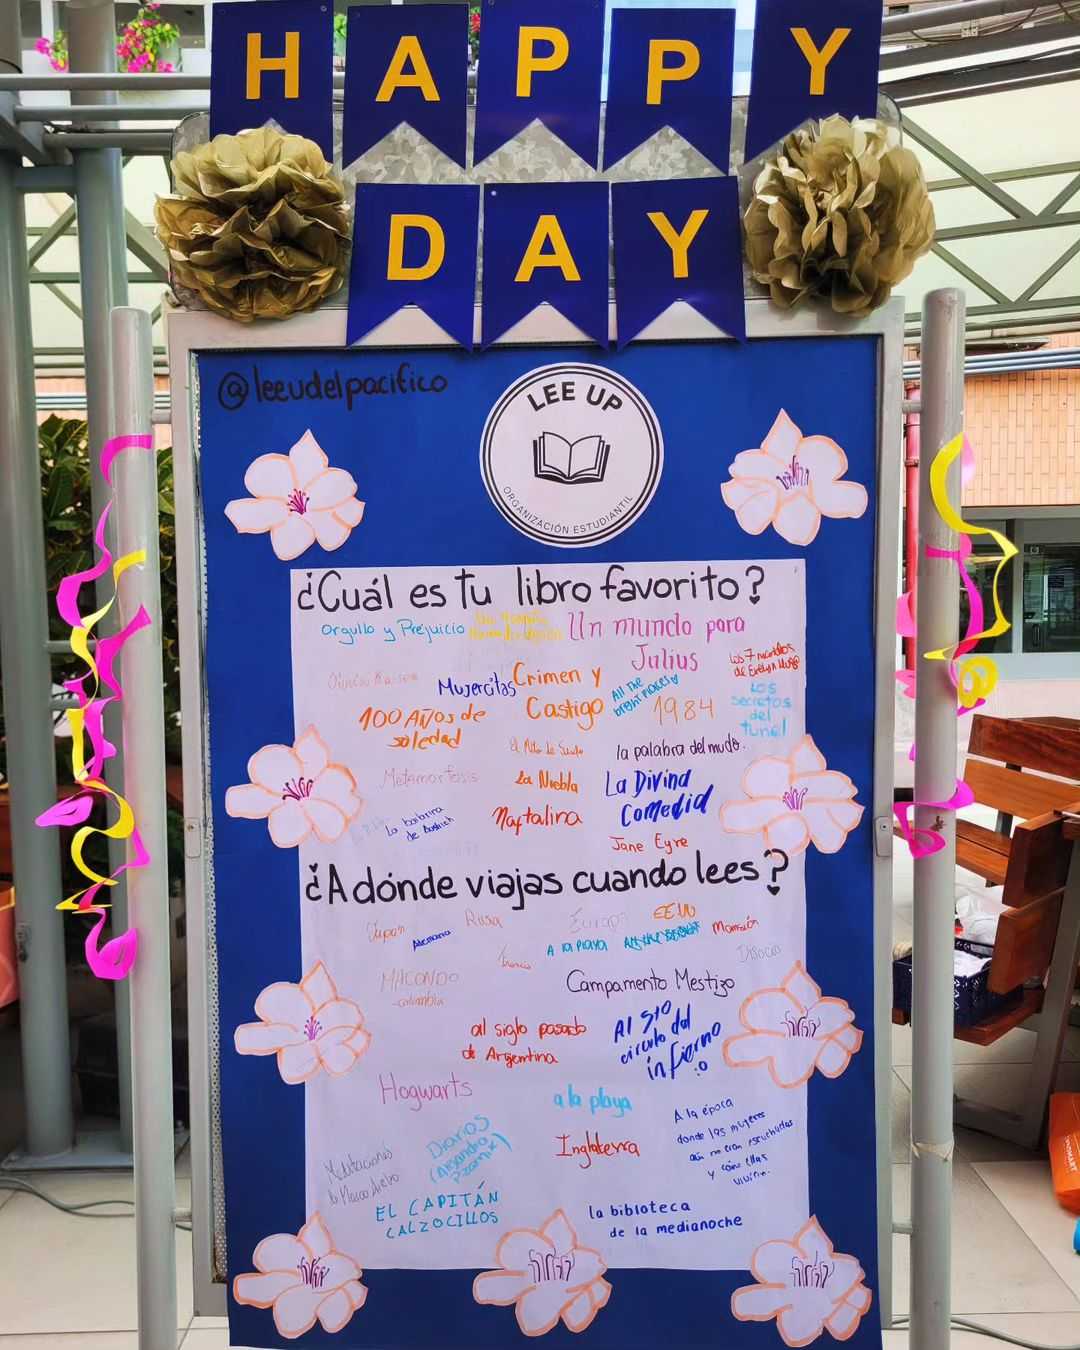 HAPPY
DAY
@leeudelpacifico
LEE UP
ORGANIZACIÓN ESTUDIANTIL
¿Cuál es tu libro favorito?
Orgullo y Prejuicio
Un mundo para
Julius
los 7 maridos
de Evelyn Hugo
Mujercitas
Crimen y
Castigo
All the
bright places
1984
los
secretos
del
tunel
100 AÑos de
soledad
la palabra del mudo.
Metamorfosis
la Niebla
La Divina
Comedia
Naftalina
La bailarina
de
Jane Eyre
¿A dónde viajas cuando lees?
Japon
Rusia
Europa
EEUU
Alemania
Francia
A la Playa
MACONDO
-colombia
Campamento Mestizo
al siglo pasado
de Argentina
Al 5to
circulo del
infierno
:o
Hogwarts
a la playa
A la época
donde las mujeres
aún no eran escuchadas
y cómo ellas
vivían.
Diarios
(Alejandra
Pizarnik)
Inglaterra
Meditaciones
EL CAPITÁN
CALZOCILLOS
la bibloteca
de la medianoche